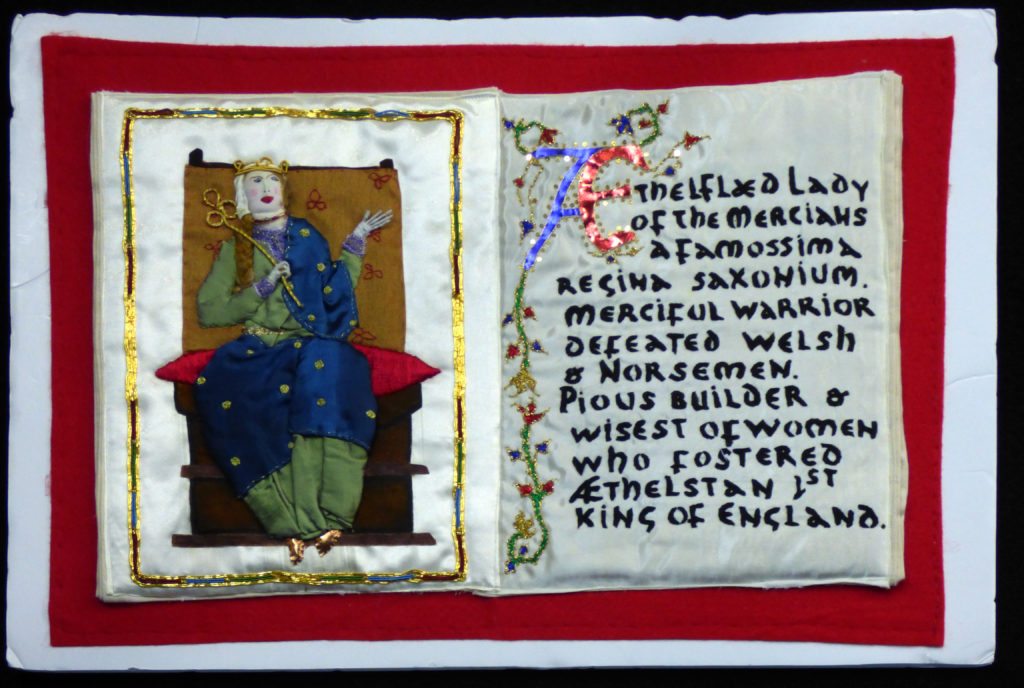 ÆThELFLÆD LADY
OF The MERCIANS
A FAMOSSIMA
REGINA SAXONIUM.
MERCIFUL WARRIOR
DEFEATED WELSh
& NORSEMEN.
PIOUS BUILDER &
WISEST OF WOMEN
Who FOSTERED
ÆThELSTAN 1ST
KING OF ENGLAND.